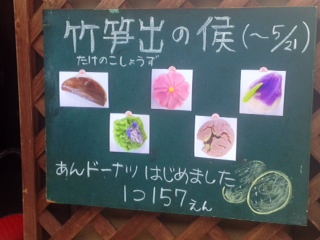 竹笋出の候(〜5/21)
たけのこしょうず
あんドーナツ はじめました
1コ157えん